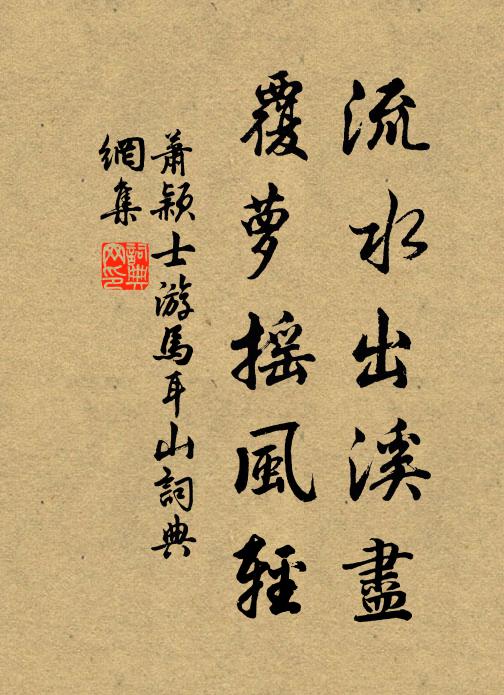 流水出溪盡
覆萝摇風輕
蕭穎士游馬耳山詞典
網集
詞典
网印